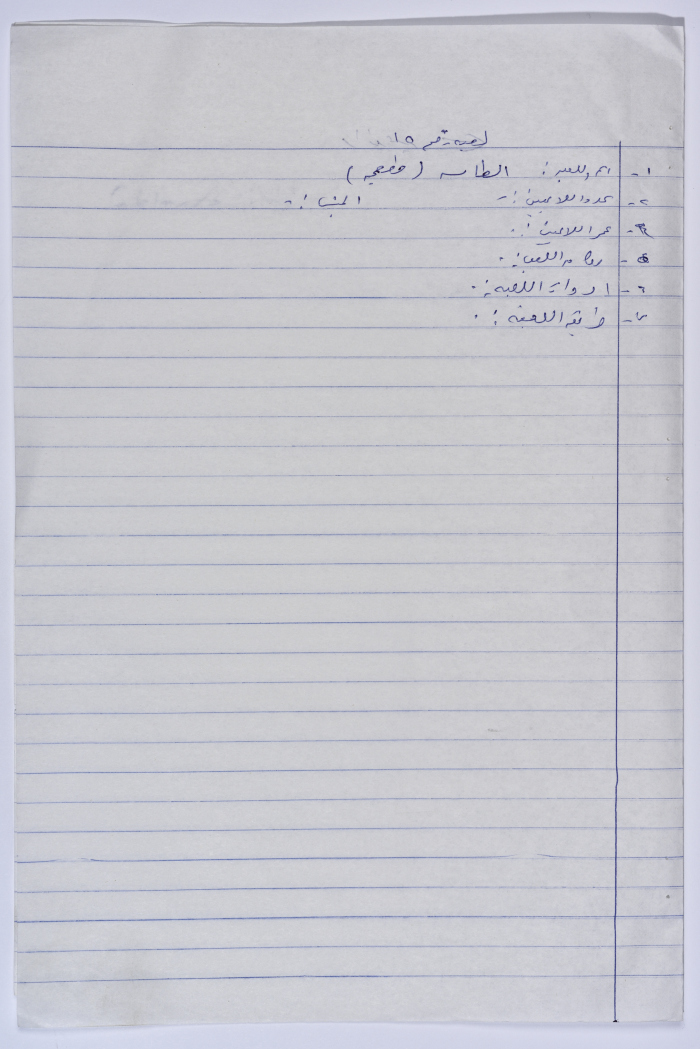 لعبة رقم ١٥
١- اسم اللعبة : الطاسه (
٢- عدد اللاعبين :- الجنس :-
عمر اللاعبين :.
٥- اللعب :.
٦- ادوات اللعبه :.
٧- طريقه اللعبه :.